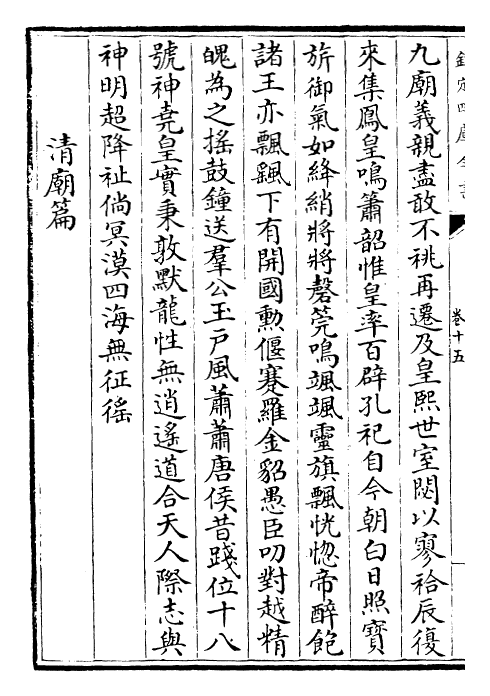 欽定四庫全書
卷十五
九廟義親盡敢不祧再遷及皇熙世室閟以寥祫辰復
來集鳳皇鳴簫韶惟皇率百辟孔祀自今朝白日照寶
旂御氣如絳綃將將磬筦鳴颯颯靈旗飄恍惚帝醉飽
諸王亦飄颻下有開國勲偃蹇羅金貂愚臣叨對越精
魄為之揺鼓鐘送羣公玉戸風蕭蕭唐侯昔踐位十八
號神堯皇實秉敦默龍性無逍遙道合天人際志與
神明超降祉倘冥漠四海無征徭
清廟篇